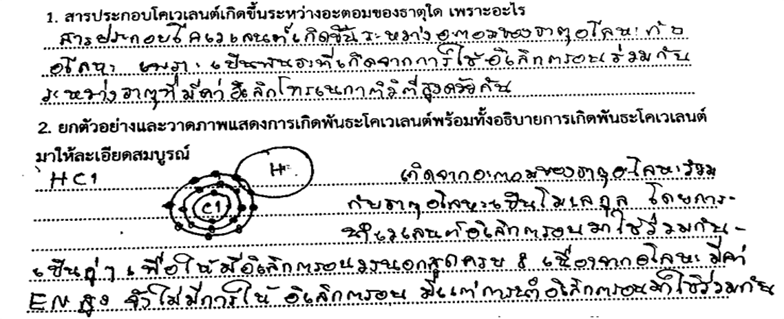 1. สารประกอบโคเวเลนต์เกิดขึ้นระหว่างอะตอมของธาตุใด เพราะอะไร
สารประกอบโคเวเลนต์เกิดขึ้นระหว่างอะตอมของธาตุอโลหะกับ
อโลหะ เพราะ เป็นพันธะที่เกิดจากการใช้อิเล็กตรอนร่วมกัน
ระหว่างธาตุที่มีค่าอิเล็กโทรเนกาติวิตีสูงด้วยกัน
2. ยกตัวอย่างและวาดภาพแสดงการเกิดพันธะโคเวเลนต์พร้อมทั้งอธิบายการเกิดพันธะโคเวเลนต์
มาให้ละเอียดสมบูรณ์
HCl
H
Cl
เกิดจากอะตอมของธาตุอโลหะรวม
กับธาตุอโลหะเป็นโมเลกุล โดยการ-
นำเวเลนต์อิเล็กตรอนมาใช้ร่วมกัน-
เป็นคู่ๆ เพื่อให้มีอิเล็กตรอนวงนอกสุดครบ 8 เนื่องจากอโลหะมีค่า
EN สูง จึงไม่มีการให้อิเล็กตรอน มีแต่การนำอิเล็กตรอนมาใช้ร่วมกัน